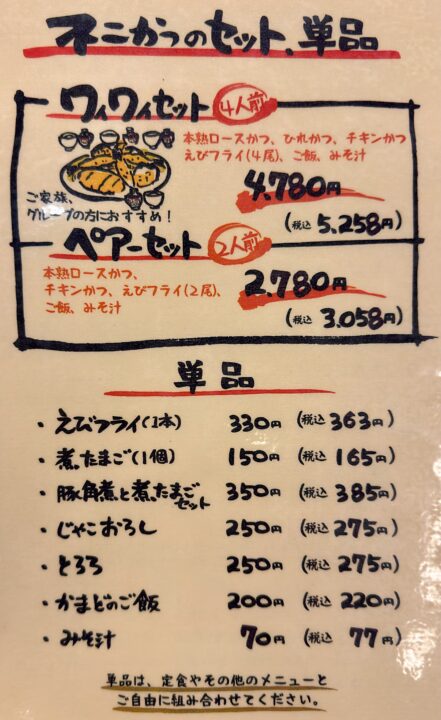 ネニかつのセット、単品
ワイワイセット 4人前
本熟ロースかつ、ひれかつ、チキンかつ
えびフライ(4尾)、ご飯、みそ汁
4.780円
(税込 5.258円)
ご家族、
グループの方におすすめ!
ペアーセット 2人前
本熟ロースかつ、
チキンかつ、えびフライ(2尾)、
ご飯、みそ汁
2.780円
(税込 3.058円)
単品
・えびフライ(1本) 330円 (税込 363円)
・煮たまご(1個) 150円 (税込 165円)
・豚角煮と煮たまごセット 350円 (税込 385円)
・じゃこおろし 250円 (税込 275円)
・とろろ 250円 (税込 275円)
・かまどのご飯 200円 (税込 220円)
・みそ汁 70円 (税込 77円)
単品は、定食やその他のメニューと
ご自由に組み合わせてください。